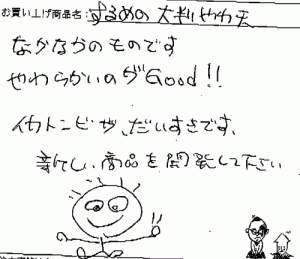 お買い上げ商品名：するめの大判やわ天
なかなかのものです
やわらかいのがGood!!
イカトンビが、だいすきです、
新しい商品を開発して下さい